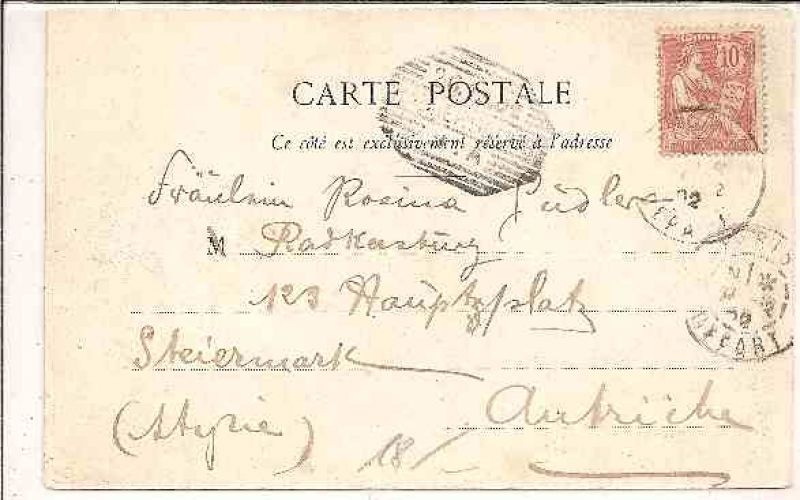 10
CARTE POSTALE
Ce côté est exclusivement réservé à l'adresse
Fräulein Rosina
M Radkersburg
123 Hauptplatz
Steiermark
(Styrie) Autriche
18/-
DEPART